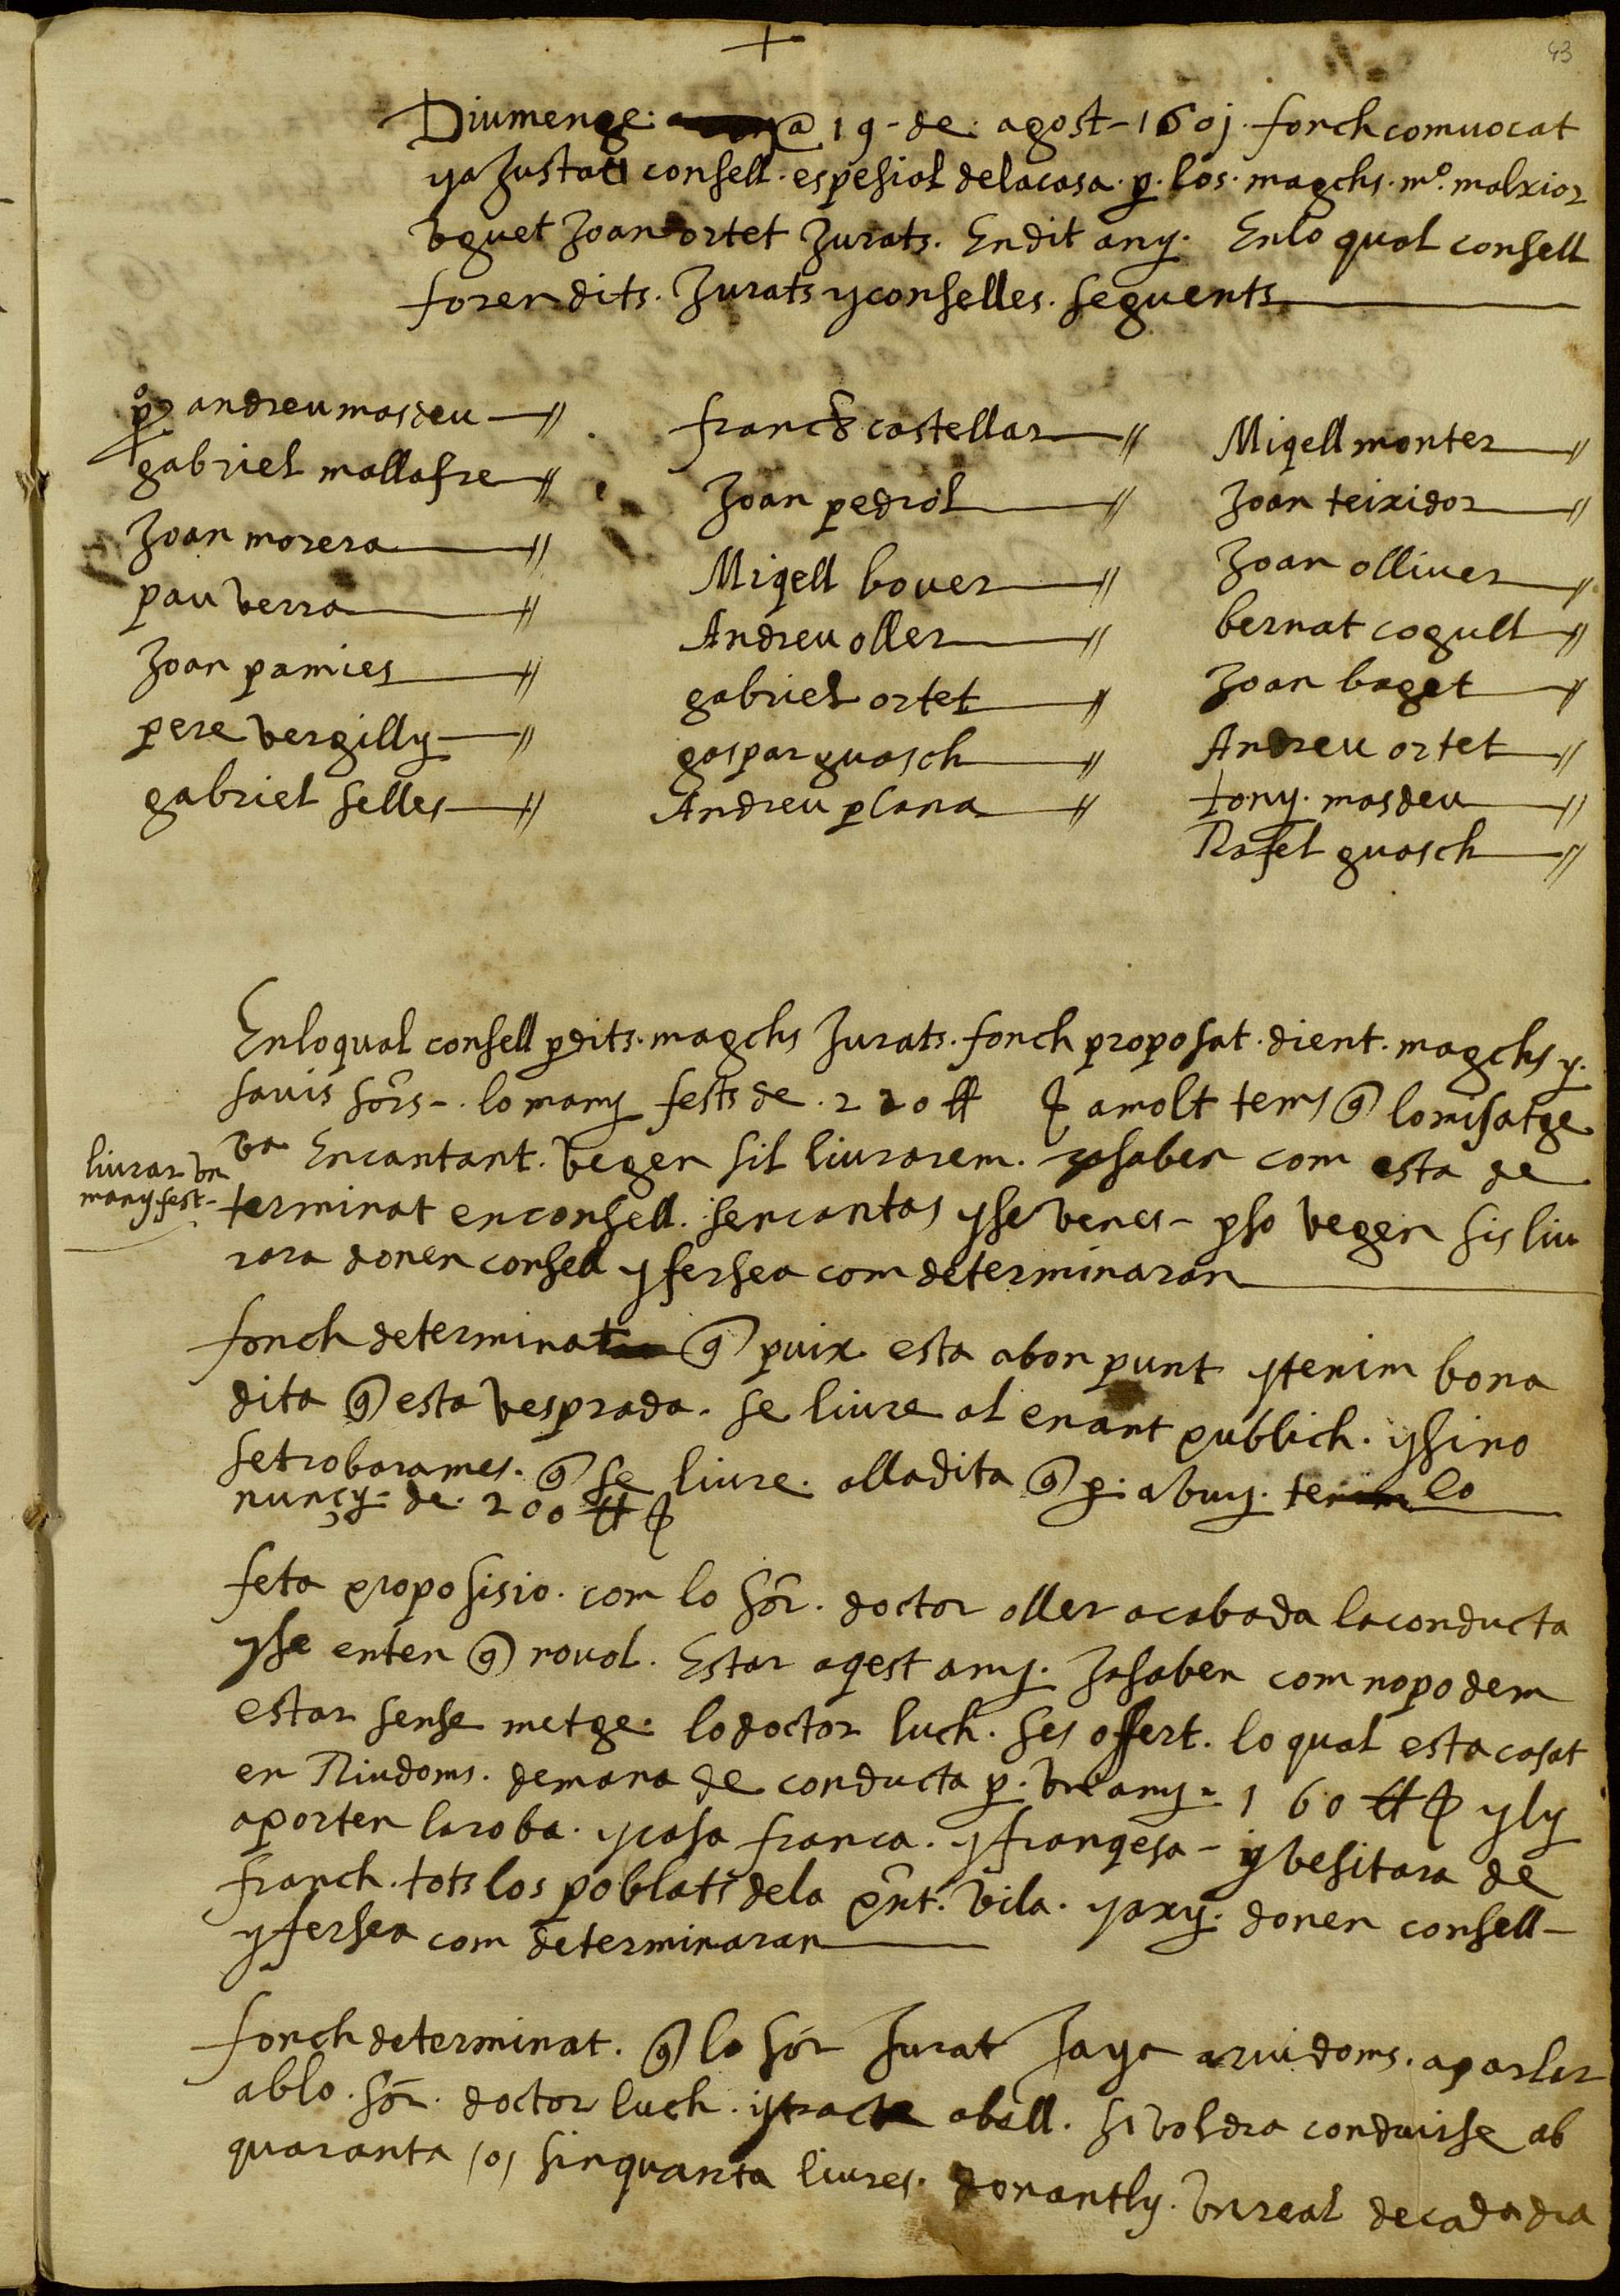 +
43
Diumenge a 19 de agost 1601 fonch comuocat
y aJustat consell espesial dela casa p los magchs mº malxior
vguet Joan ortet Jurats. En dit any. Enlo qual consell
foren dits. Jurats y conselles seguents
pº andreu masdeu
gabriel mallafre
Joan morera
pau verra
Joan pamies
pere vergilly
gabriel selles
franc castellar
Joan pedrol
Miqell bouer
Andreu oller
gabriel ortet
gaspar guasch
Andreu plana
Miqell monter
Joan teixidor
Joan olliuer
bernat cogull
Joan baget
Andreu ortet
tony masdeu
Rafel guasch
Enloqual consell p dits magchs Jurats fonch proposat dient magchs y
sauis sõrs. lo many fests de 220 ₶ amolt tems q̃ lo misatge
va Encantant. vegen sil liurarem. Ja saben com esta de
liurar vn
many fest
terminat en consell sencantas y se venes pso vegen sis liu
rara donen consell y fersea com determinaran
fonch determinat q̃ puix esta abon punt y tenim bona
dita q̃ esta vesprada se liure al enant publich y sino
se trobara mes q̃ se liure alladita q̃ p abuy lo
nunçy de 200 ₶
feta proposisio com lo sõr doctor oller acabada laconducta
y se enten q̃ novol Estar aqest any. Ja saben com nopodem
estar sense metge lo doctor luch ses offert lo qual esta casat
en Riudoms demana de conducta p vn any 160 ₶ y ly
aporten laroba y casa franca y franqesa y vesitara de
franch tots los poblats dela pñt vila y axy donen consell
y fersea com determinaran
fonch determinat q̃ lo sõr Jurat Jaye ariudoms aparlar
ablo sõr doctor luch y tracte abell si voldra conduirse ab
quaranta /o/ sinquanta liures donantly vn real de cada dia